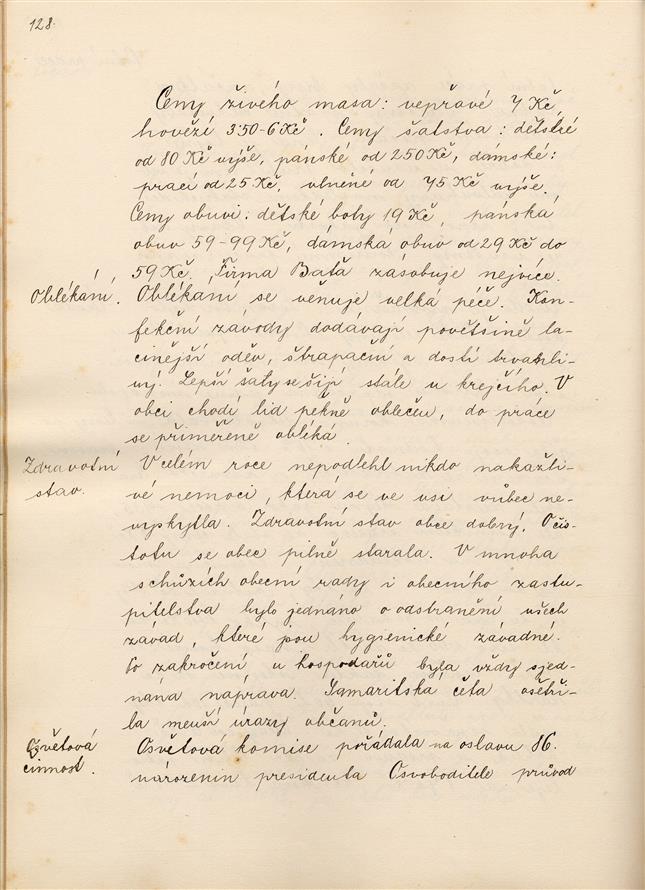 128.
Ceny živého masa: vepřové 7 Kč,
hovězí 3·50-6 Kč. Ceny šatstva: dětské
od 80 Kč výše, pánské od 250 Kč, dámské:
prací od 25 Kč, vlněné od 45 Kč výše.
Ceny obuvi: dětské boty 19 Kč, pánská
obuv 59-99 Kč, dámská obuv od 29 Kč do
59 Kč. Firma Baťa zásobuje nejvíce.
Oblékání. Oblékání se věnuje velká péče. Kon-
fekční závody dodávají povětšině la-
cinější oděv, štrapační a dosti trvanli-
vý. Lepší šaty se šijí stále u krejčího. V
obci chodí lid pěkně oblečen, do práce
se přiměřeně obléká.
Zdravotní V celém roce nepodlehl nikdo nakažli-
stav. vé nemoci, která se ve vsi vůbec ne-
vyskytla. Zdravotní stav obce dobrý. O čis-
totu se obec pilně starala. V mnoha
schůzích obecní rady i obecního zastu-
pitelstva bylo jednáno o odstranění všech
závad, které jsou hygienické závadné.
Po zakročení u hospodářů byla vždy sjed-
nána náprava. Samaritská četa ošetři-
la menší úrazy občanů.
Osvětová Osvětová komise pořádala na oslavu 86.
činnost. narozenin presidenta Osvoboditele průvod